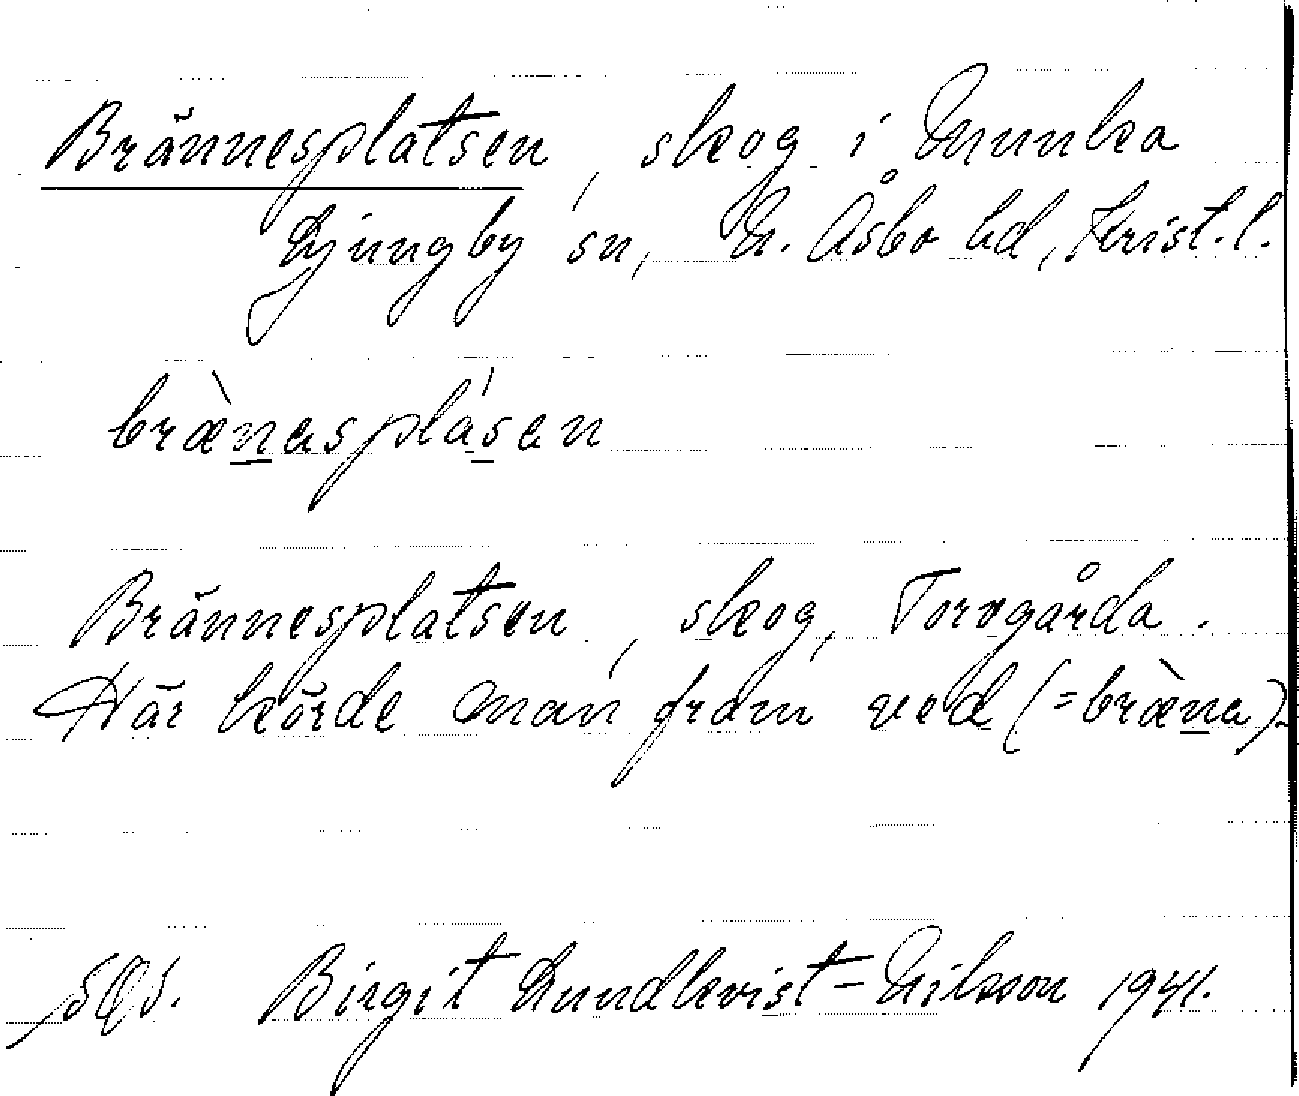 Brännesplatsen, skog i Munka
Ljungby sn, N. Åsbo hd, Krist. l.
bræ̀nasplásan
Brännesplatsen, skog, Torvgårda.
Här körde man fram ved (=bræ̀na).
Birgit Lundkvist-Nilsson 1941.